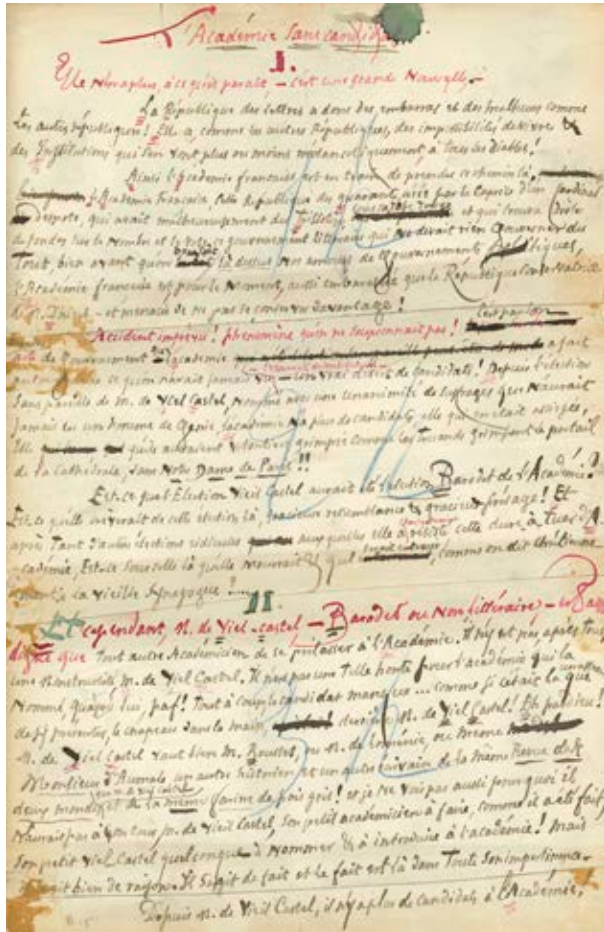 Académie sans candidats
I.
Elle n'en a plus, à ce qu'il paraît, — c'est une grande Nouvelle. —
La République des lettres a donc des embarras et des malheurs comme
les autres républiques ! Elle a, comme les autres Républiques, des impossibilités de vivre &
des Institutions qui s'en vont plus ou moins mélancoliquement à tous les Diables !
Ainsi l'Académie française est en train de prendre ce chemin là,
l'Académie française cette République des quarante, créée par le Caprice d'un Cardinal
Despote, qui avait et qui trouva drôle
de fonder sur le Nombre et le vote, ce gouvernement littéraire qui ne devrait rien gouverner du
Tout, bien avant qu'on là dessus nos amours de Gouvernements Politiques,
l'Académie française est pour le moment, aussi embarrassée que la République Conservatrice
de M. Thiers — et menace de ne pas se conserver davantage !
Accident imprévu ! phénomène qu'on ne soupçonnait pas !
de Gouvernement l'académie a fait
ce qu'on n'avait jamais vu — un vrai désert de candidats ! Depuis l'élection
sans pareille de M. de Viel Castel, nommé avec une unanimité de suffrages que n'aurait
jamais eu un homme de Génie, l'académie n'a plus de candidats, elle qui en était assiégée,
Elle qu'ils auraient grimpée comme les truands grimpent le portail
de la Cathédrale, dans Notre Dame de Paris !!
Est-ce que l'Élection Viel Castel aurait été l'élection Barodet de l'Académie ?
Est-ce qu'elle crèverait de cette élection là, gracieuse ressemblance & gracieux présage ! Et
après Tant d'autres élections ridicules auxquelles elle a résisté cette dure à Tuer d'A
-cadémie, Est-ce sous celle là qu'elle mourrait & qu'il , comme on dit
la vieille Synagogue ?....
II
Et cependant, M. de Viel-Castel, — Barodet ou Non littéraire, — est aussi
digne que Tout autre Académicien de se prélasser à l'Académie. Il n'y est pas, après tout
une M. de Viel Castel. Il n'est pas une Telle honte pour l'académie qui l'a
Nommé, quoi qu'oui, paf ! Tout à coup le candidat manque ... comme si c'était là que
de s'y présenter, le chapeau dans la main, derrière M. de Viel Castel ! Eh pardieu !
M. de Viel Castel vaut bien M. Rousset, ou M. de Loménie, ou même
Monsieur d'Aumale un autre historien, et un autre écrivain de la même Revue des
deux mondes et de la même farine de pois gris ! et je ne vois pas aussi pourquoi il
n'aurait pas à son tour, M. de Viel Castel, son petit académicien à faire, comme il a été fait,
son petit Viel Castel quelconque à Nommer & à introduire à l'académie ! Mais
il s'agit bien de raison. Il s'agit de fait et le fait est là dans Toute son impertinence.
Depuis M. de Viel Castel, il n'y a plus de candidats à l'Académie,